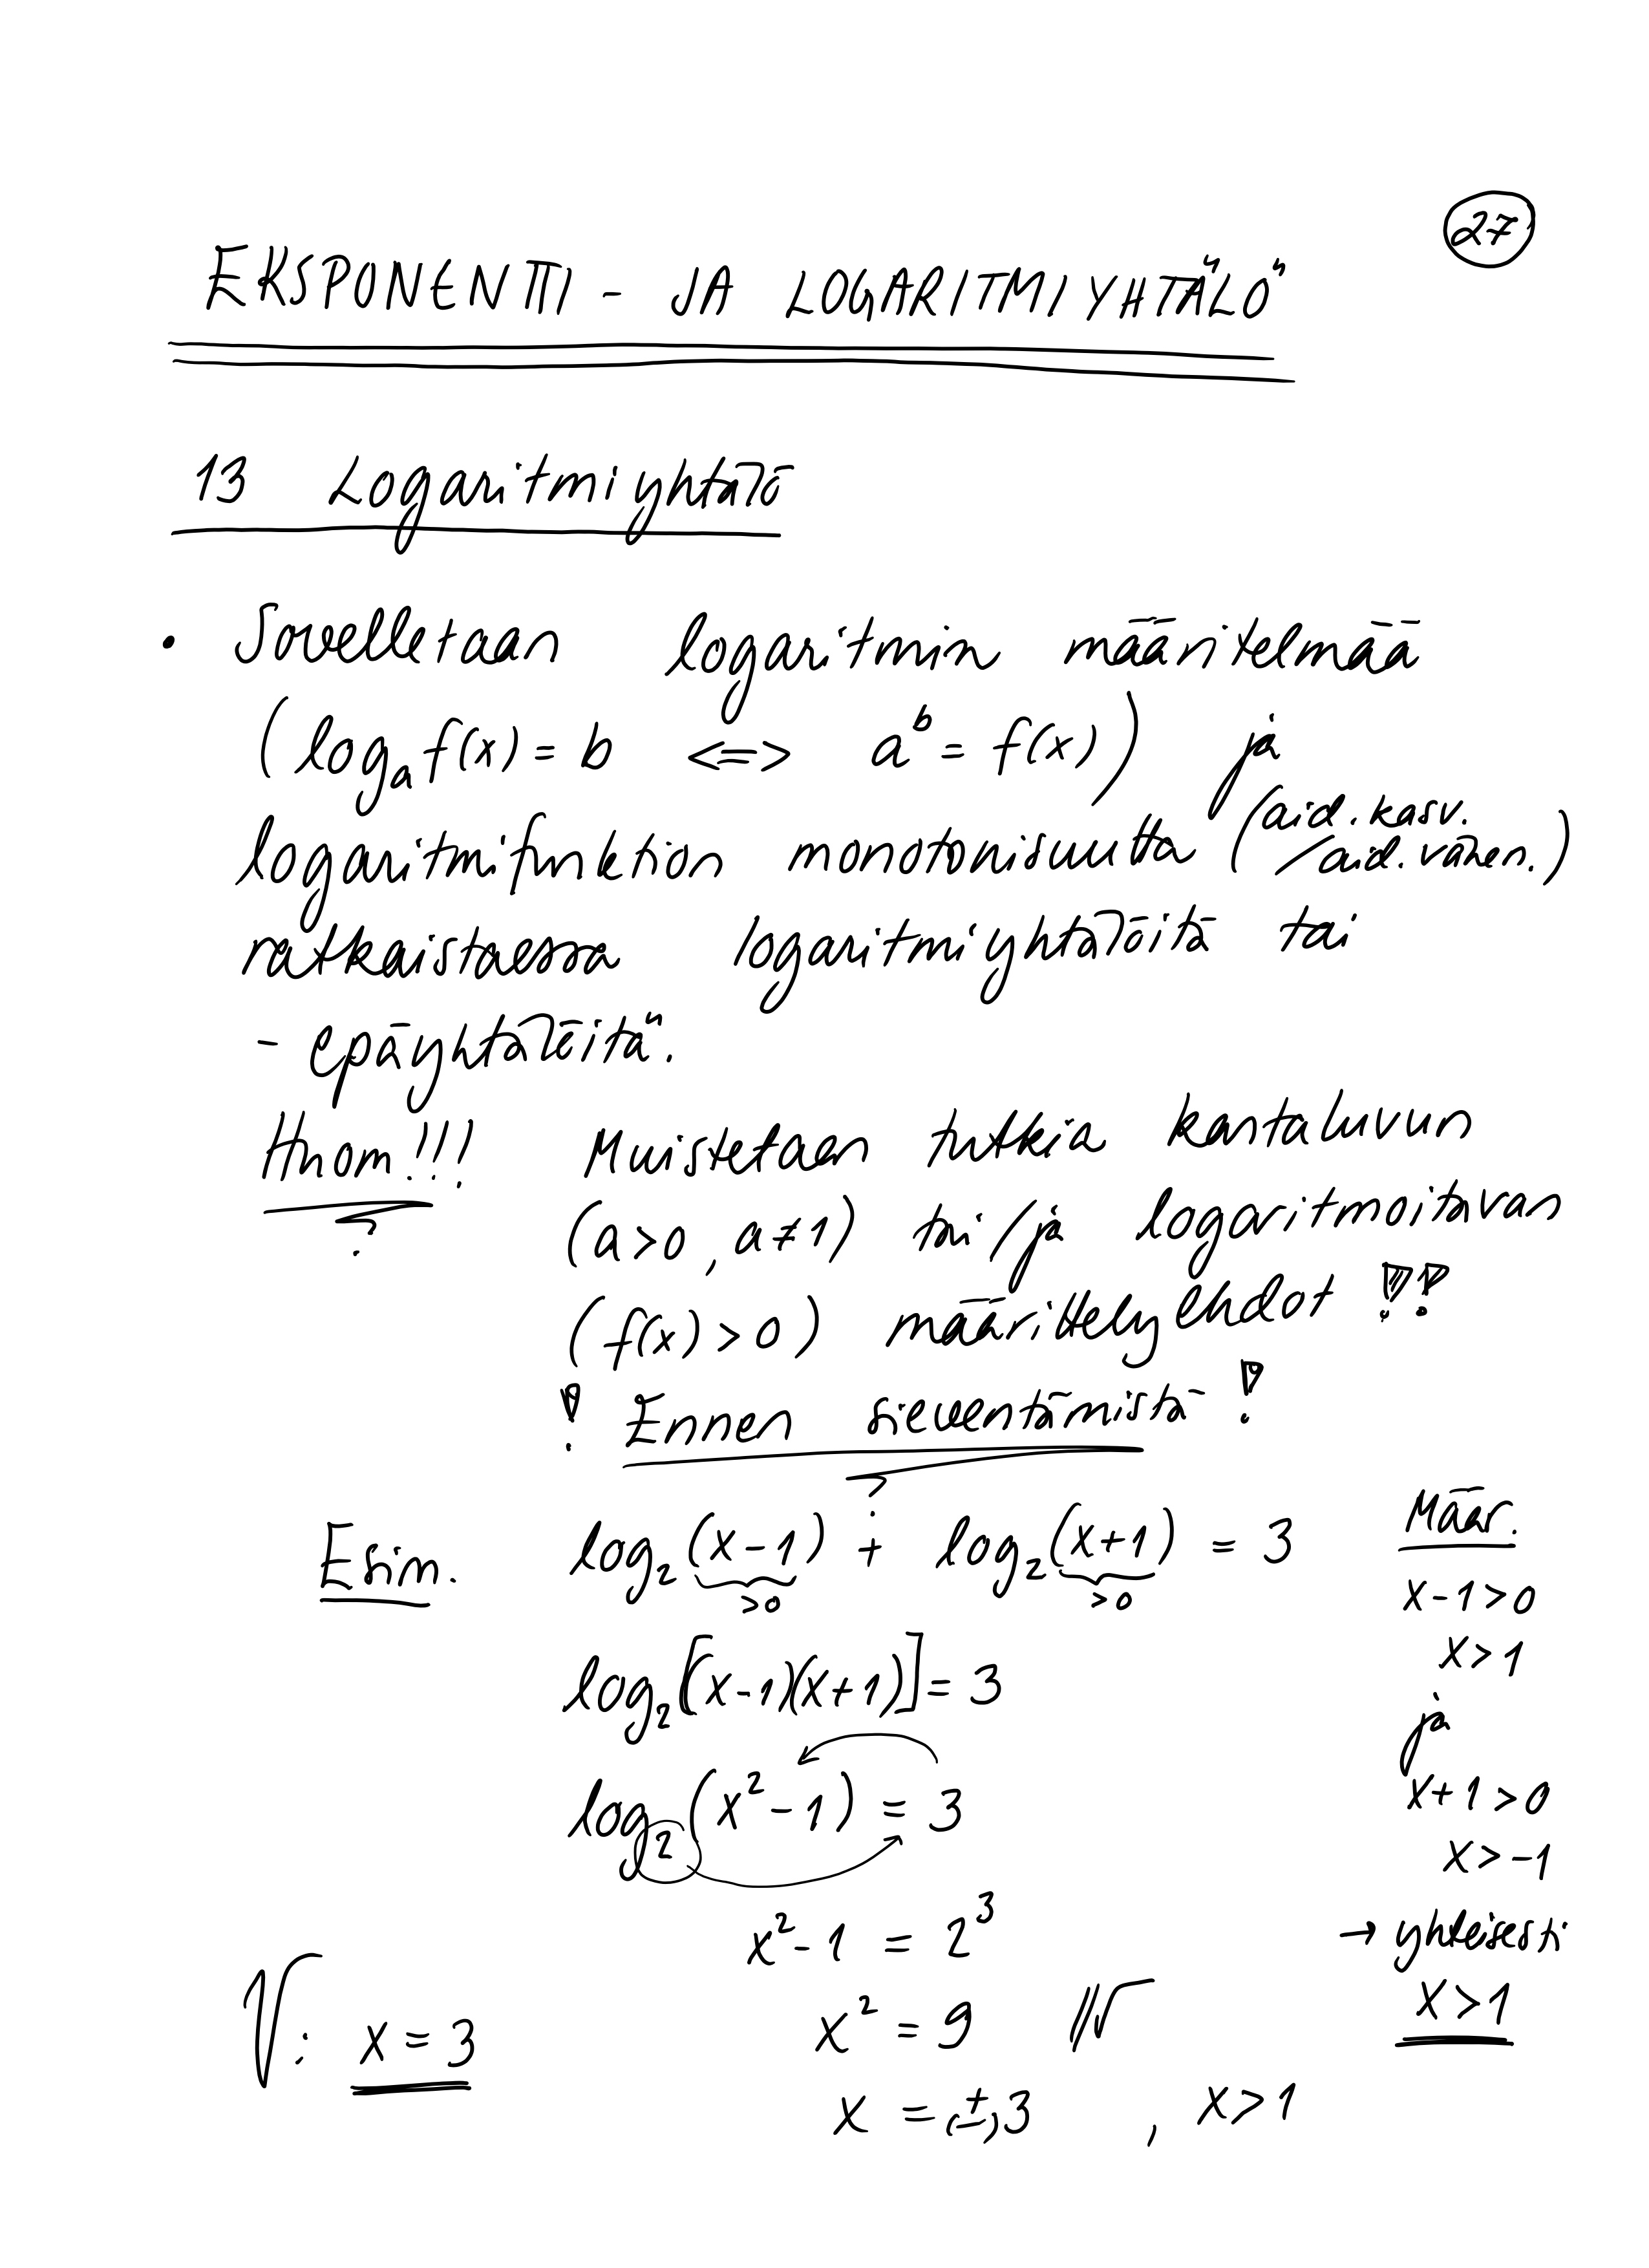 27
EKSPONENTTI - JA LOGARITMIYHTÄLÖ
13 Logaritmiyhtälö
• Sovelletaan logaritmin määritelmää
(logₐ f(x) = b <=> aᵇ = f(x)) ja
logaritmifunktion monotonisuutta (aid. kasv.
/aid. vähen.)
ratkaistaessa logaritmiyhtälöitä tai
- epäyhtälöitä.
Huom!!! Muistetaan tutkia kantaluvun
(a > 0, a ≠ 1) tai/ja logaritmoitavan
(f(x) > 0) määrittelyehdot !!
! Ennen sieventämistä !
Esim. log₂(x - 1) + log₂(x + 1) = 3
>0 >0
log₂[(x-1)(x+1)] = 3
log₂(x² - 1) = 3
x² - 1 = 2³
x² = 9 ‖√
x = (±)3 , x > 1
V: x = 3
Määr.
x - 1 > 0
x > 1
ja
x + 1 > 0
x > -1
→ yhteisesti
x > 1